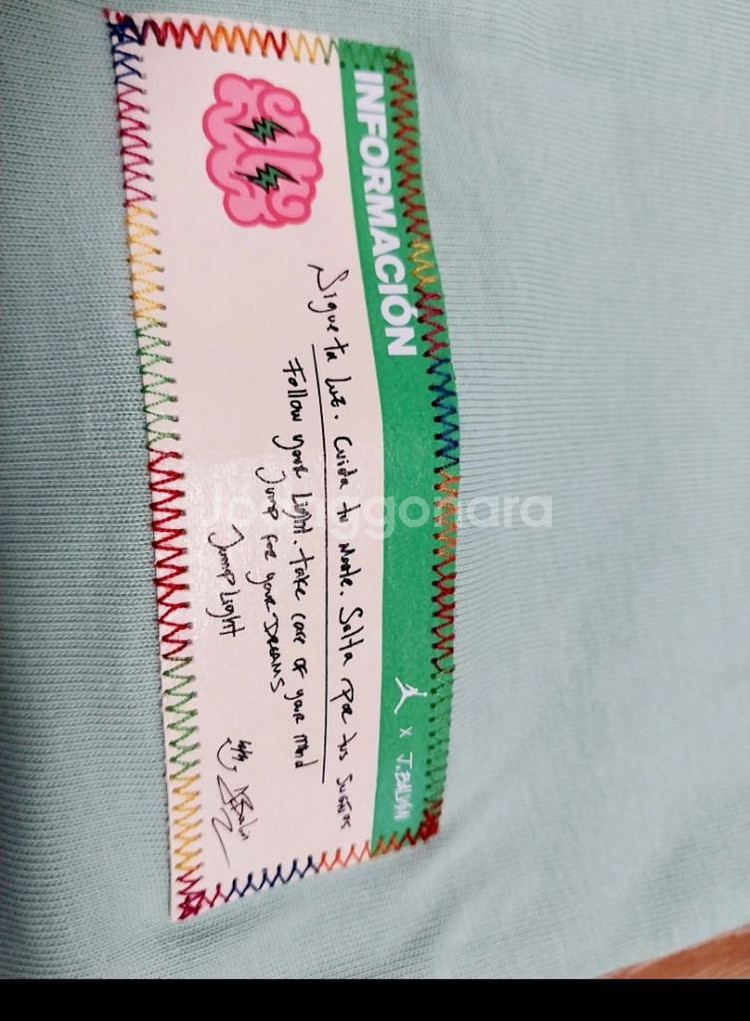 INFORMACIÓN
X J.BALVIN
Sigue tu luz. Cuida tu Mente. Salta por tus sueños
Follow your Light. take care of your mind
Jump for your DREAMS
Jump Light
joonggonara